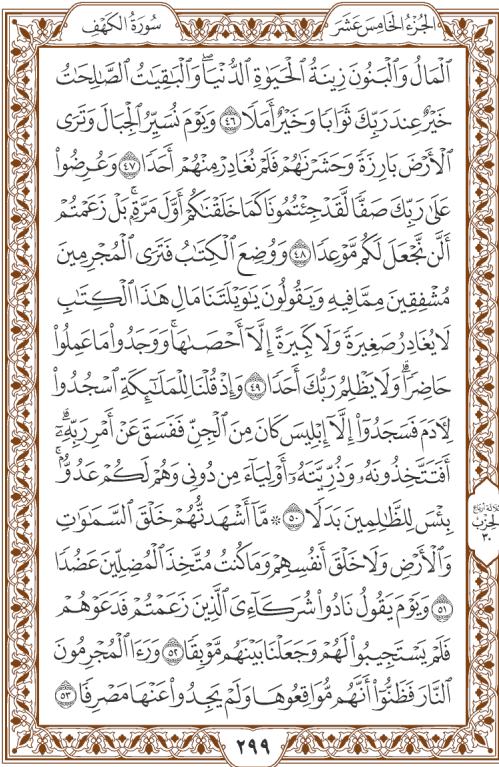 الجُزْءُ الخَامِسَ عَشَرَ
سُورَةُ الكَهْفِ
ٱلۡمَالُ وَٱلۡبَنُونَ زِينَةُ ٱلۡحَيَوٰةِ ٱلدُّنۡيَاۖ وَٱلۡبَٰقِيَٰتُ ٱلصَّٰلِحَٰتُ
خَيۡرٌ عِندَ رَبِّكَ ثَوَابٗا وَخَيۡرٌ أَمَلٗا ٤٦ وَيَوۡمَ نُسَيِّرُ ٱلۡجِبَالَ وَتَرَى
ٱلۡأَرۡضَ بَارِزَةٗ وَحَشَرۡنَٰهُمۡ فَلَمۡ نُغَادِرۡ مِنۡهُمۡ أَحَدٗا ٤٧ وَعُرِضُواْ
عَلَىٰ رَبِّكَ صَفّٗا لَّقَدۡ جِئۡتُمُونَا كَمَا خَلَقۡنَٰكُمۡ أَوَّلَ مَرَّةِۭۚ بَلۡ زَعَمۡتُمۡ
أَلَّن نَّجۡعَلَ لَكُم مَّوۡعِدٗا ٤٨ وَوُضِعَ ٱلۡكِتَٰبُ فَتَرَى ٱلۡمُجۡرِمِينَ
مُشۡفِقِينَ مِمَّا فِيهِ وَيَقُولُونَ يَٰوَيۡلَتَنَا مَالِ هَٰذَا ٱلۡكِتَٰبِ
لَا يُغَادِرُ صَغِيرَةٗ وَلَا كَبِيرَةً إِلَّآ أَحۡصَىٰهَاۚ وَوَجَدُواْ مَا عَمِلُواْ
حَاضِرٗاۗ وَلَا يَظۡلِمُ رَبُّكَ أَحَدٗا ٤٩ وَإِذۡ قُلۡنَا لِلۡمَلَٰٓئِكَةِ ٱسۡجُدُواْ
لِأٓدَمَ فَسَجَدُوٓاْ إِلَّآ إِبۡلِيسَ كَانَ مِنَ ٱلۡجِنِّ فَفَسَقَ عَنۡ أَمۡرِ رَبِّهِۦٓۗ
أَفَتَتَّخِذُونَهُۥ وَذُرِّيَّتَهُۥٓ أَوۡلِيَآءَ مِن دُونِي وَهُمۡ لَكُمۡ عَدُوُّۢۚ
بِئۡسَ لِلظَّٰلِمِينَ بَدَلٗا ٥٠ ۞ مَّآ أَشۡهَدتُّهُمۡ خَلۡقَ ٱلسَّمَٰوَٰتِ
وَٱلۡأَرۡضِ وَلَا خَلۡقَ أَنفُسِهِمۡ وَمَا كُنتُ مُتَّخِذَ ٱلۡمُضِلِّينَ عَضُدٗا
٥١ وَيَوۡمَ يَقُولُ نَادُواْ شُرَكَآءِيَ ٱلَّذِينَ زَعَمۡتُمۡ فَدَعَوۡهُمۡ
فَلَمۡ يَسۡتَجِيبُواْ لَهُمۡ وَجَعَلۡنَا بَيۡنَهُم مَّوۡبِقٗا ٥٢ وَرَءَا ٱلۡمُجۡرِمُونَ
ٱلنَّارَ فَظَنُّوٓاْ أَنَّهُم مُّوَاقِعُوهَا وَلَمۡ يَجِدُواْ عَنۡهَا مَصۡرِفٗا ٥٣
الحِزْب
٣٠
٢٩٩